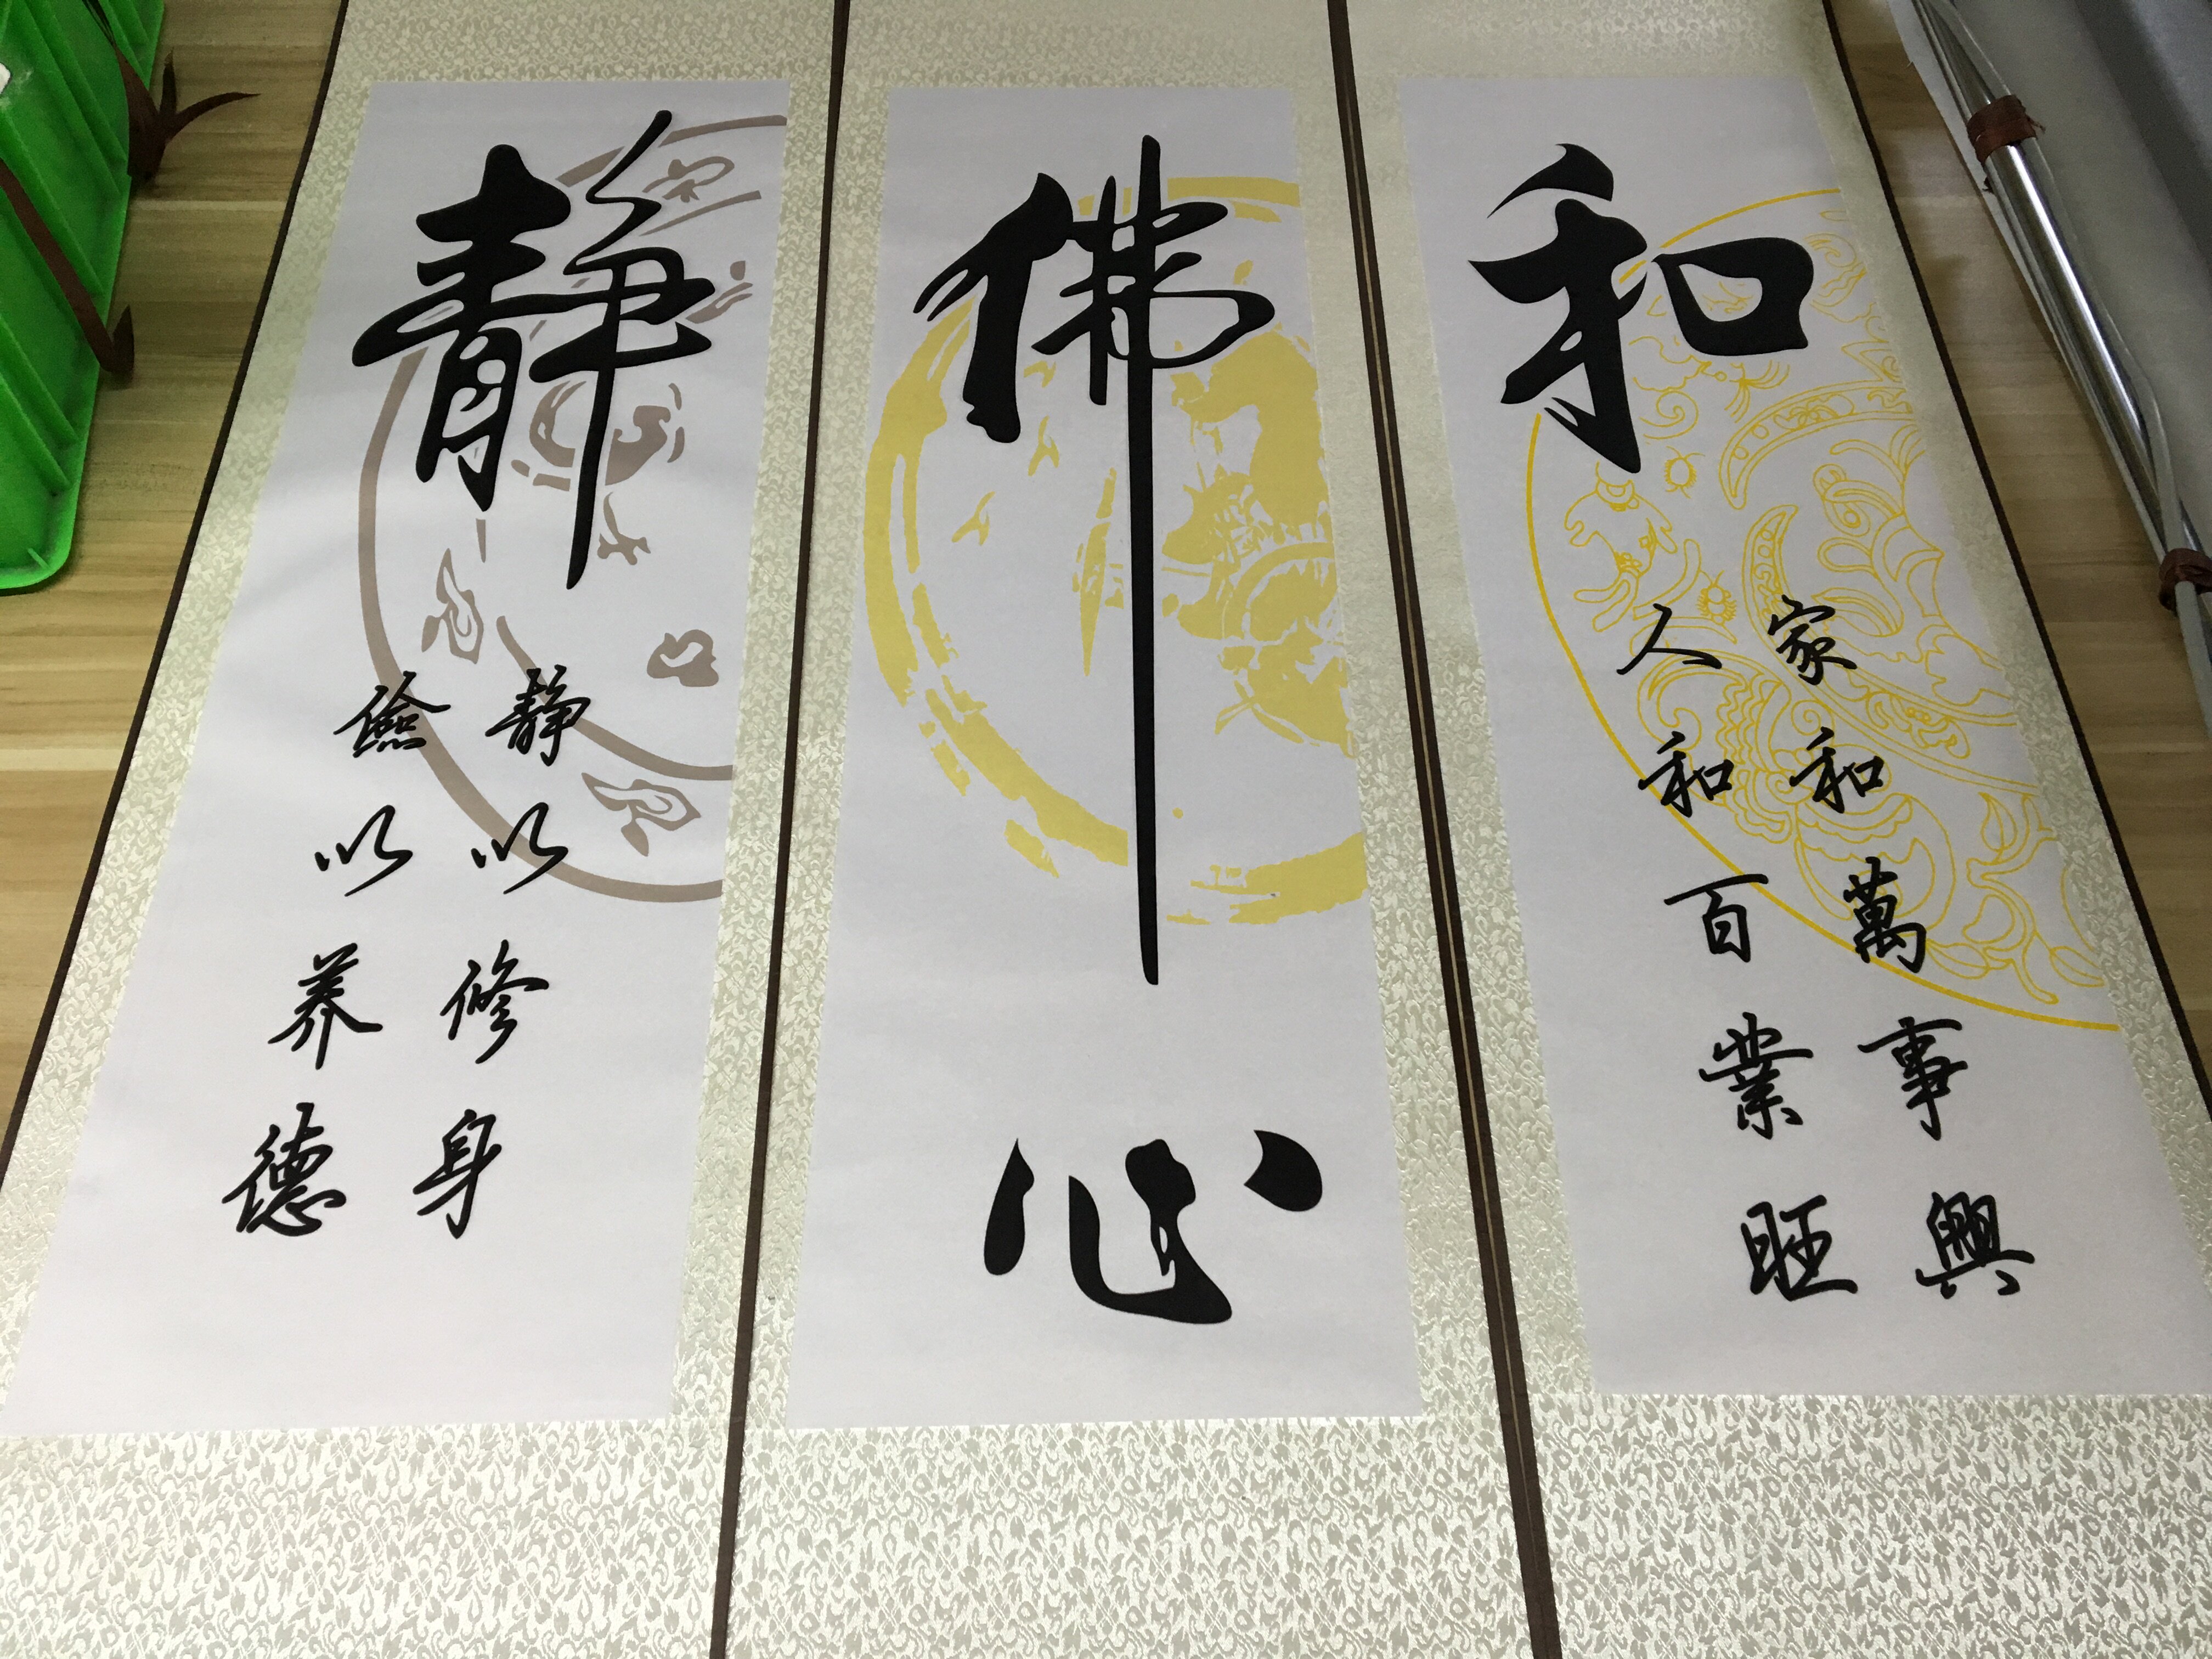 静
静以修身
儉以养德
佛心
和
家和萬事興
人和百業旺